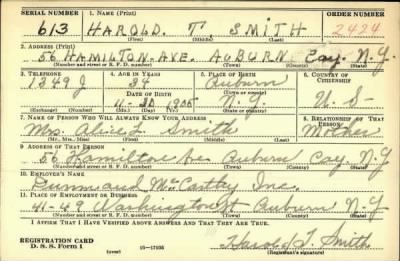 SERIAL NUMBER 1. NAME (Print) ORDER NUMBER
613 HAROLD. T SMITH 2424
(First) (Middle) (Last)
2. ADDRESS (Print)
56 HAMILTON. AVE. AUBURN Cay. N.Y.
(Number and street or R. F. D. number) (Town) (County) (State)
3. TELEPHONE 4. AGE IN YEARS 5. PLACE OF BIRTH 6. COUNTRY OF CITIZENSHIP
1349 J 34 Auburn
DATE OF BIRTH (Town or county)
11-30 1905 N.Y. U.S-
(Exchange) (Number) (Mo.) (Day) (Yr.) (State or country)
7. NAME OF PERSON WHO WILL ALWAYS KNOW YOUR ADDRESS 8. RELATIONSHIP OF THAT PERSON
Mrs. Alice L Smith Mother
(Mr., Mrs., Miss) (First) (Middle) (Last)
9. ADDRESS OF THAT PERSON
56 Hamilton Ave Auburn Cay. N.Y
(Number and street or R. F. D. number) (Town) (County) (State)
10. EMPLOYER'S NAME
Dunn and McCarthy Inc.
11. PLACE OF EMPLOYMENT OR BUSINESS
41-49 Washington St Auburn N.Y
(Number and street or R. F. D. number) (Town) (County) (State)
I AFFIRM THAT I HAVE VERIFIED ABOVE ANSWERS AND THAT THEY ARE TRUE.
REGISTRATION CARD
D. S. S. Form 1 16—17105 Harold T Smith
(Registrant's signature)